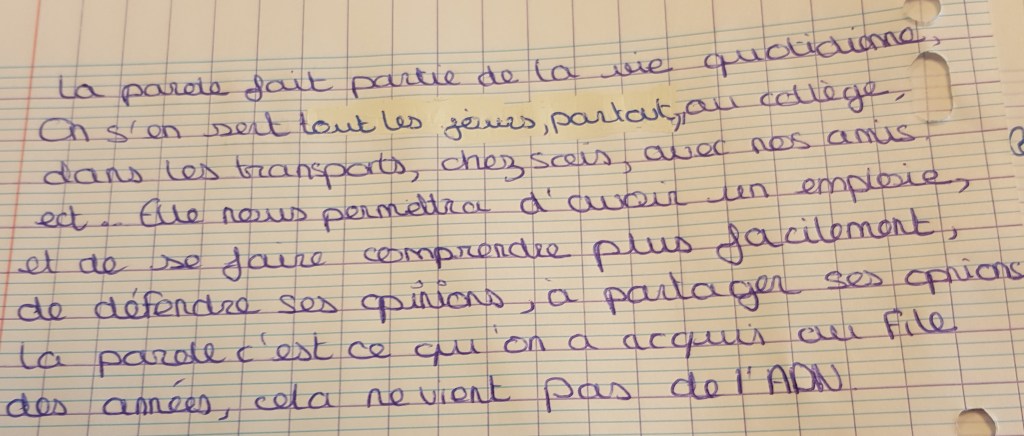 La parole fait partie de la vie quotidienne,
On s'en sert tout les jours, partout, au collège,
dans les transports, chez sois, avec nos amis
ect.. Elle nous permettra d'avoir un emploie,
et de se faire comprendre plus facilement,
de défendre ses opinions, à partager ses opnions
La parole c'est ce qu'on a acquis au file
des années, cela ne vient pas de l'ADN